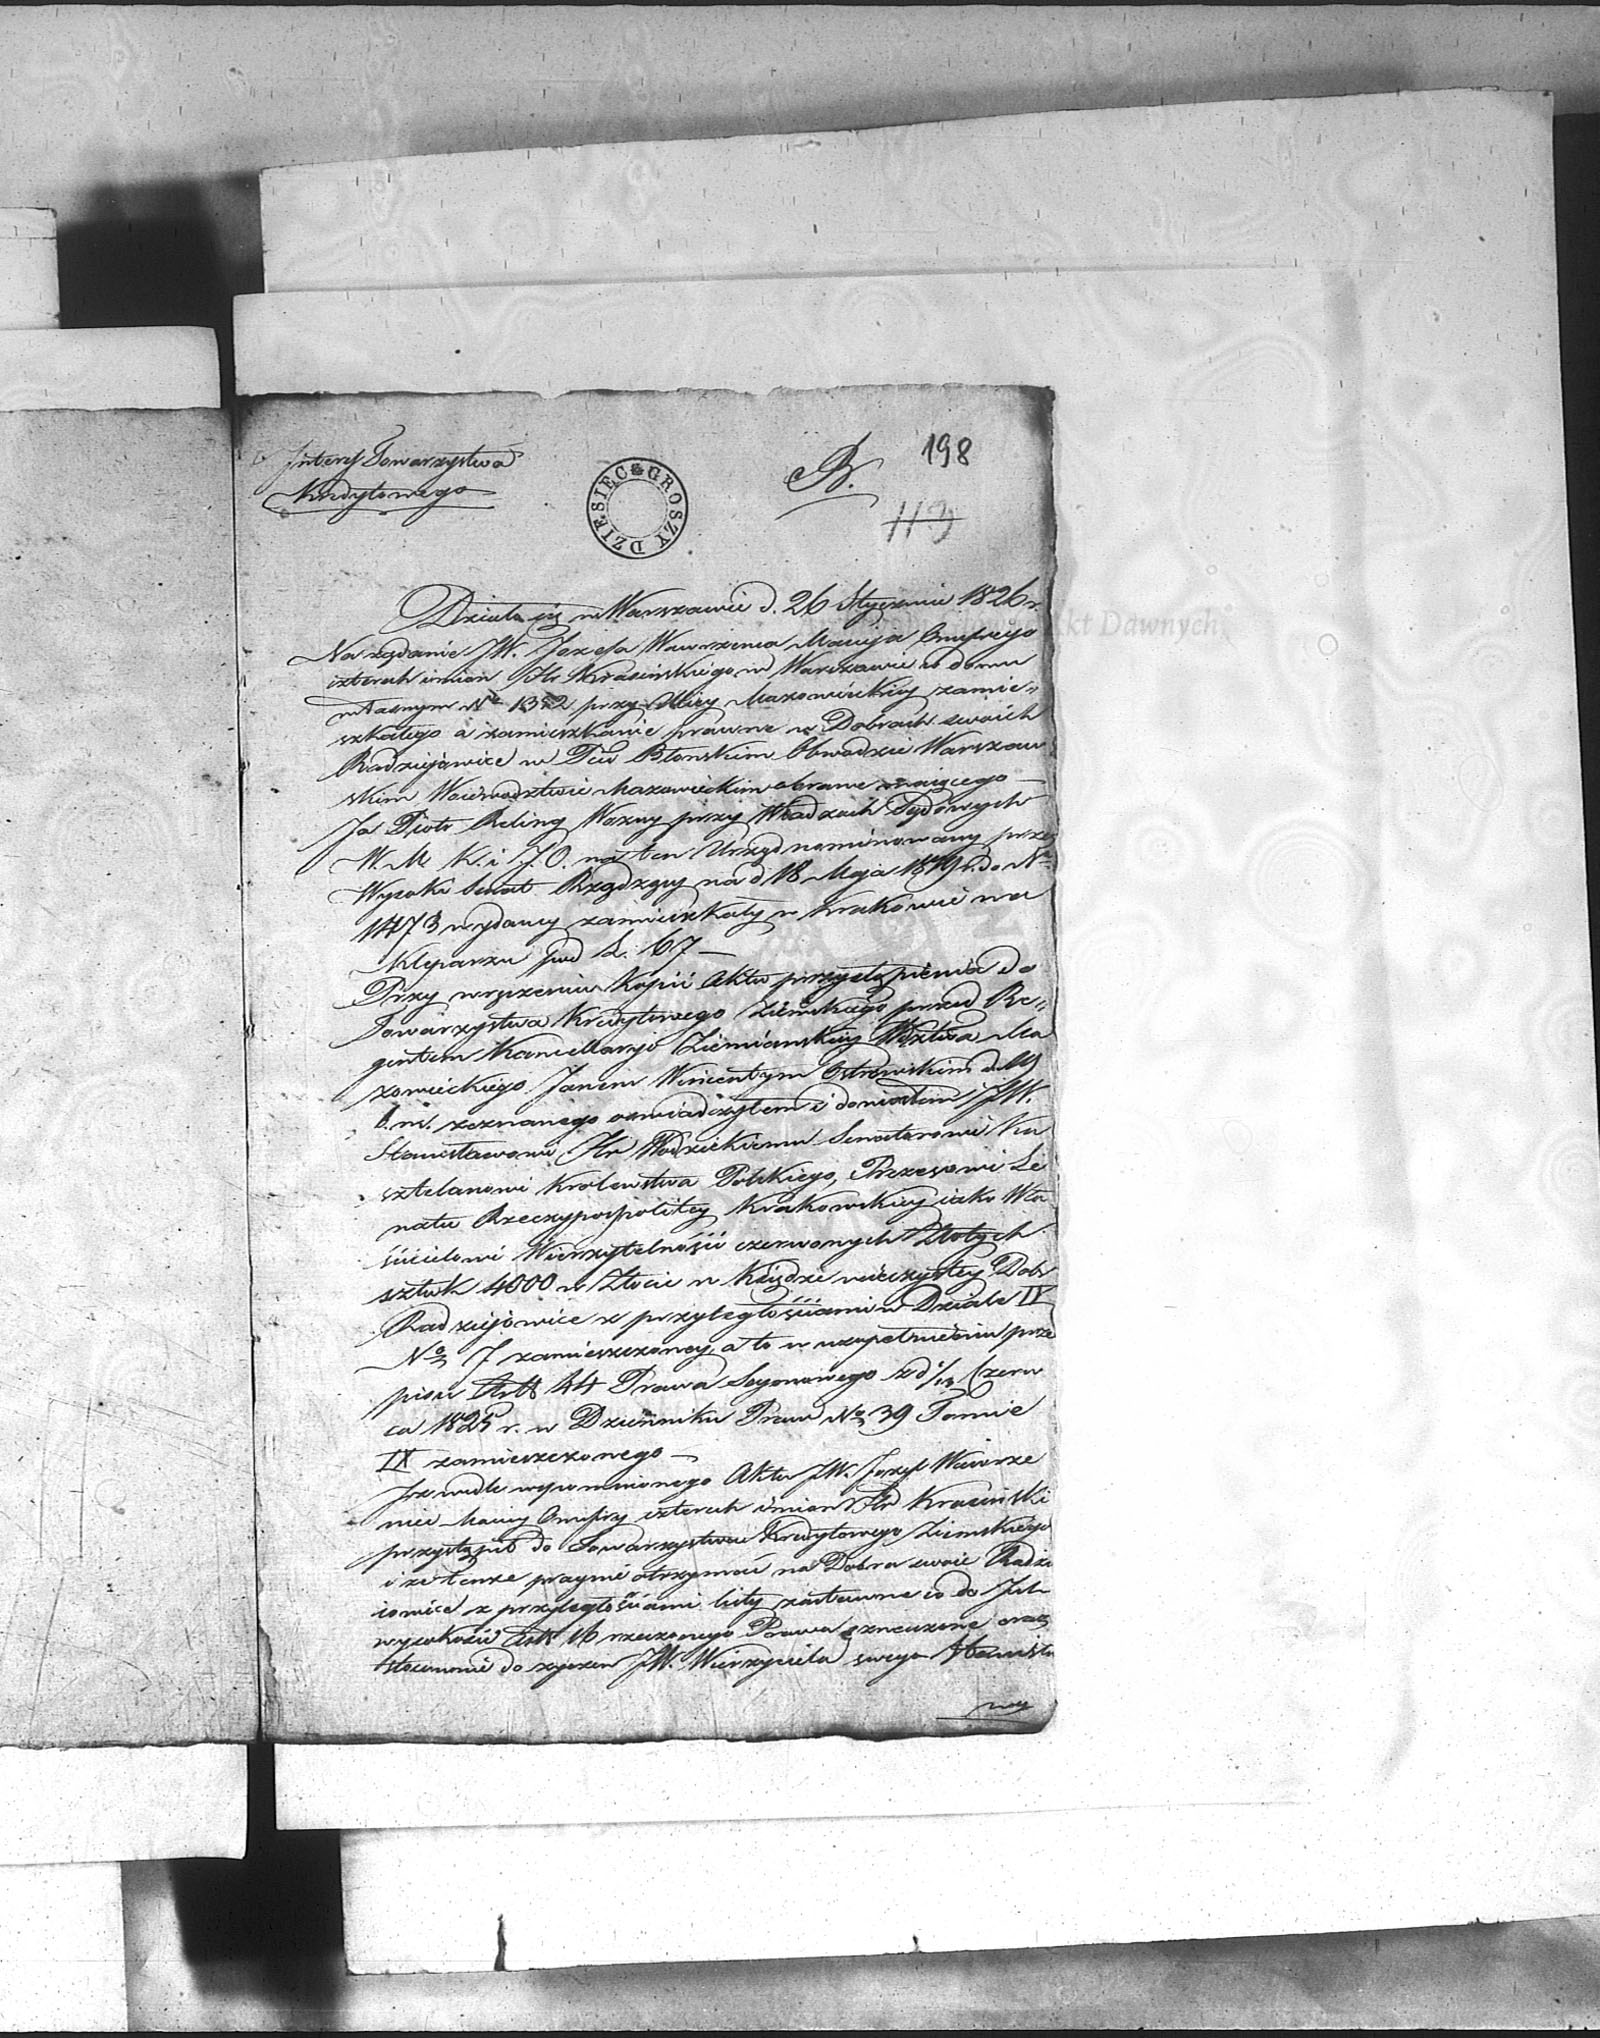 Interes Towarzystwa
Kredytowego
DZIESIĘĆ GROSZY
B.
198
113
Działo się w Warszawie d. 26 Stycznia 1826 r.
Na żądanie JW. Józefa Wawrzeńca Macieja Onufrego
czterech imion Hr Krasińskiego w Warszawie w domu
własnym No 1352 przy Ulicy Mazowieckiey zamie-
szkałego a zamieszkanie prawne w Dobrach swoich
Radziejowice w Pcie Błońskim Obwodzie Warszaw
skim Woiewództwie Mazowieckim obrane maiącego —
Ja Piotr Reling Woźny przy Władzach Sądowych
W. M. K. i J. O. na ten Urząd nominowany przez
Wysoki Senat Rządzący na d 18 Maja 1819 r. do No
1473 wydaney zamieszkały w Krakowie na
Kleparzu pod L. 67 —
Przy wręczeniu Kopii Aktu przystąpienia do
Towarzystwa Kredytowego Ziemskiego przed Re-
gentem Kancellaryi Ziemiańskiey Wdztwa Ma
zowieckiego Janem Wincentym Ostrowskim d.
b. m. zeznanego oświadczyłem i doniosłem JW.
Stanisławowi Hr Wodzickiemu Senatorowi Ka
sztelanowi Królewstwa Polskiego, Prezesowi Se
natu Rzeczypospolitey Krakowskiey iako Wła
ścicielowi Wierzytelności czerwonych Złotych
sztuk 4000 w Złocie w Księdze wieczystey Dobr
Radziejowice z przyległościami w Dziale IV
No 7 zamieszczoney, a to w uzupełnieniu prze
pisu Artt 44 Prawa Seymowego z d 1/13 Czerw
ca 1825 r. w Dzienniku Praw No 39 Tomie
IX zamieszczonego —
Iż wedle wspomnionego Aktu JW. Józef Wawrze
niec Maciey Onufry czterech imion Hr Krasiński
przystąpił do Towarzystwa Kredytowego Ziemskiego
i że tenże pragnie otrzymać na Dobra swoie Radzie
iowice z przyległościami listy zastawne co do Ich
wysokości Artt 16 rzeczonego Prawa oznaczone oraz
stosownie do życzen JW. Wierzyciela swego Stanisła